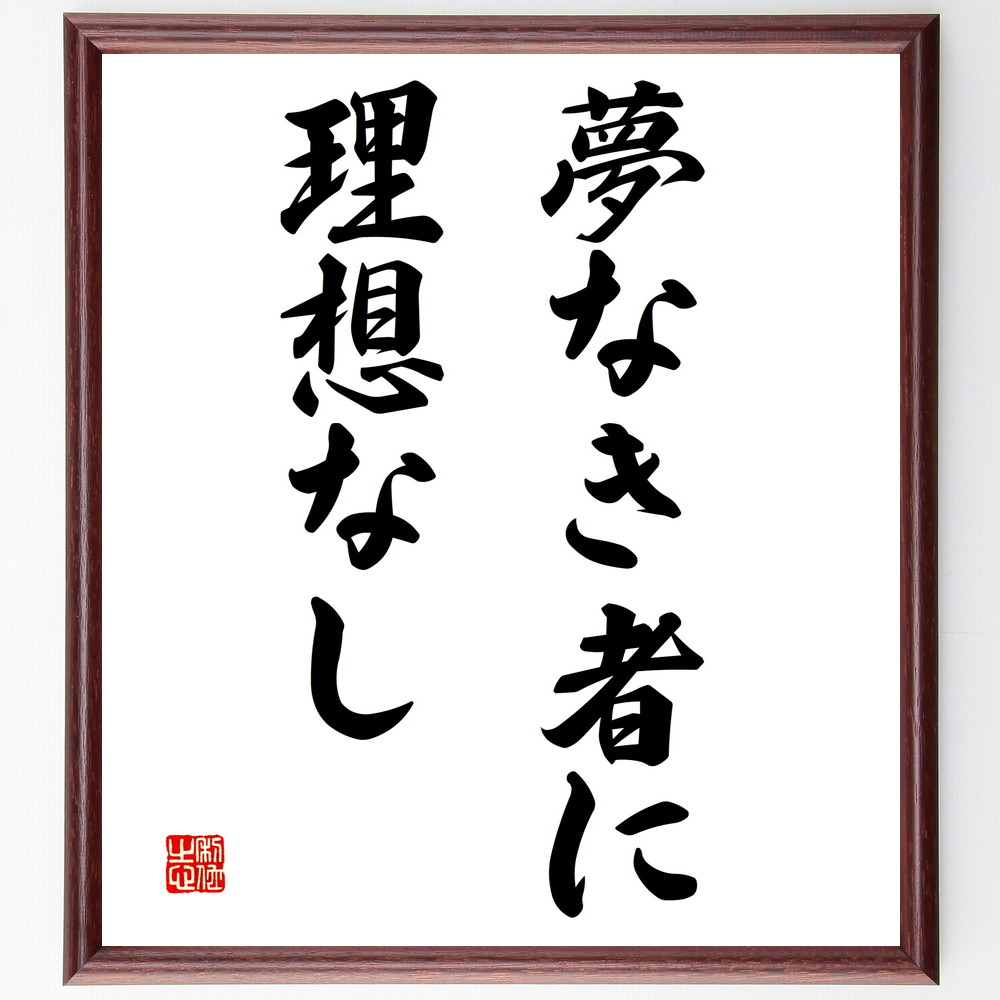 夢なき者に
理想なし